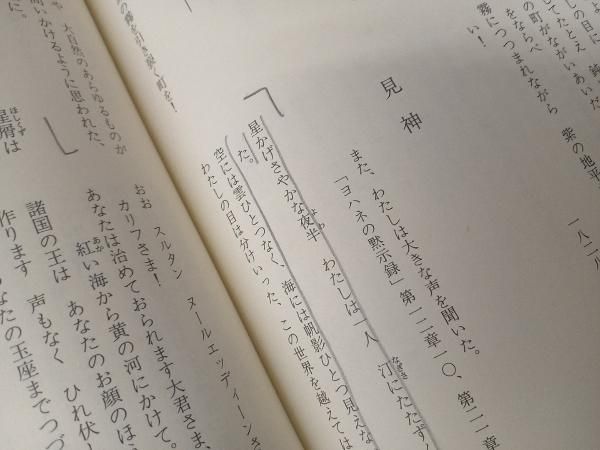 しの目に 鈍
てたとえ
てがながいあいだ
の町が
をならべ
霧につつまれながら 紫の地平
い!
一八二八
見神
また、わたしは大きな声を聞いた。
「ヨハネの黙示録」第一二章一〇、第二一章
星かげさやかな夜半 わたしは一人 汀にたたず
よわ
なぎさ
た。
空には雲ひとつなく、海には帆影ひとつ見えな
わたしの目は分けいった、この世界を越えては
の霧を引き裂く町を!
や 大自然のあらゆるものが
問いかけるように思われた、
に。
ほしくず
星屑は
おお スルタン ヌールエッディーンさ
カリフさま!
あなたは治めておられます大君さま、
紅い海から黄の河にかけて。
あか
諸国の王は あなたのお顔のほ
声もなく ひれ伏し
作ります
なたの玉座までつづ